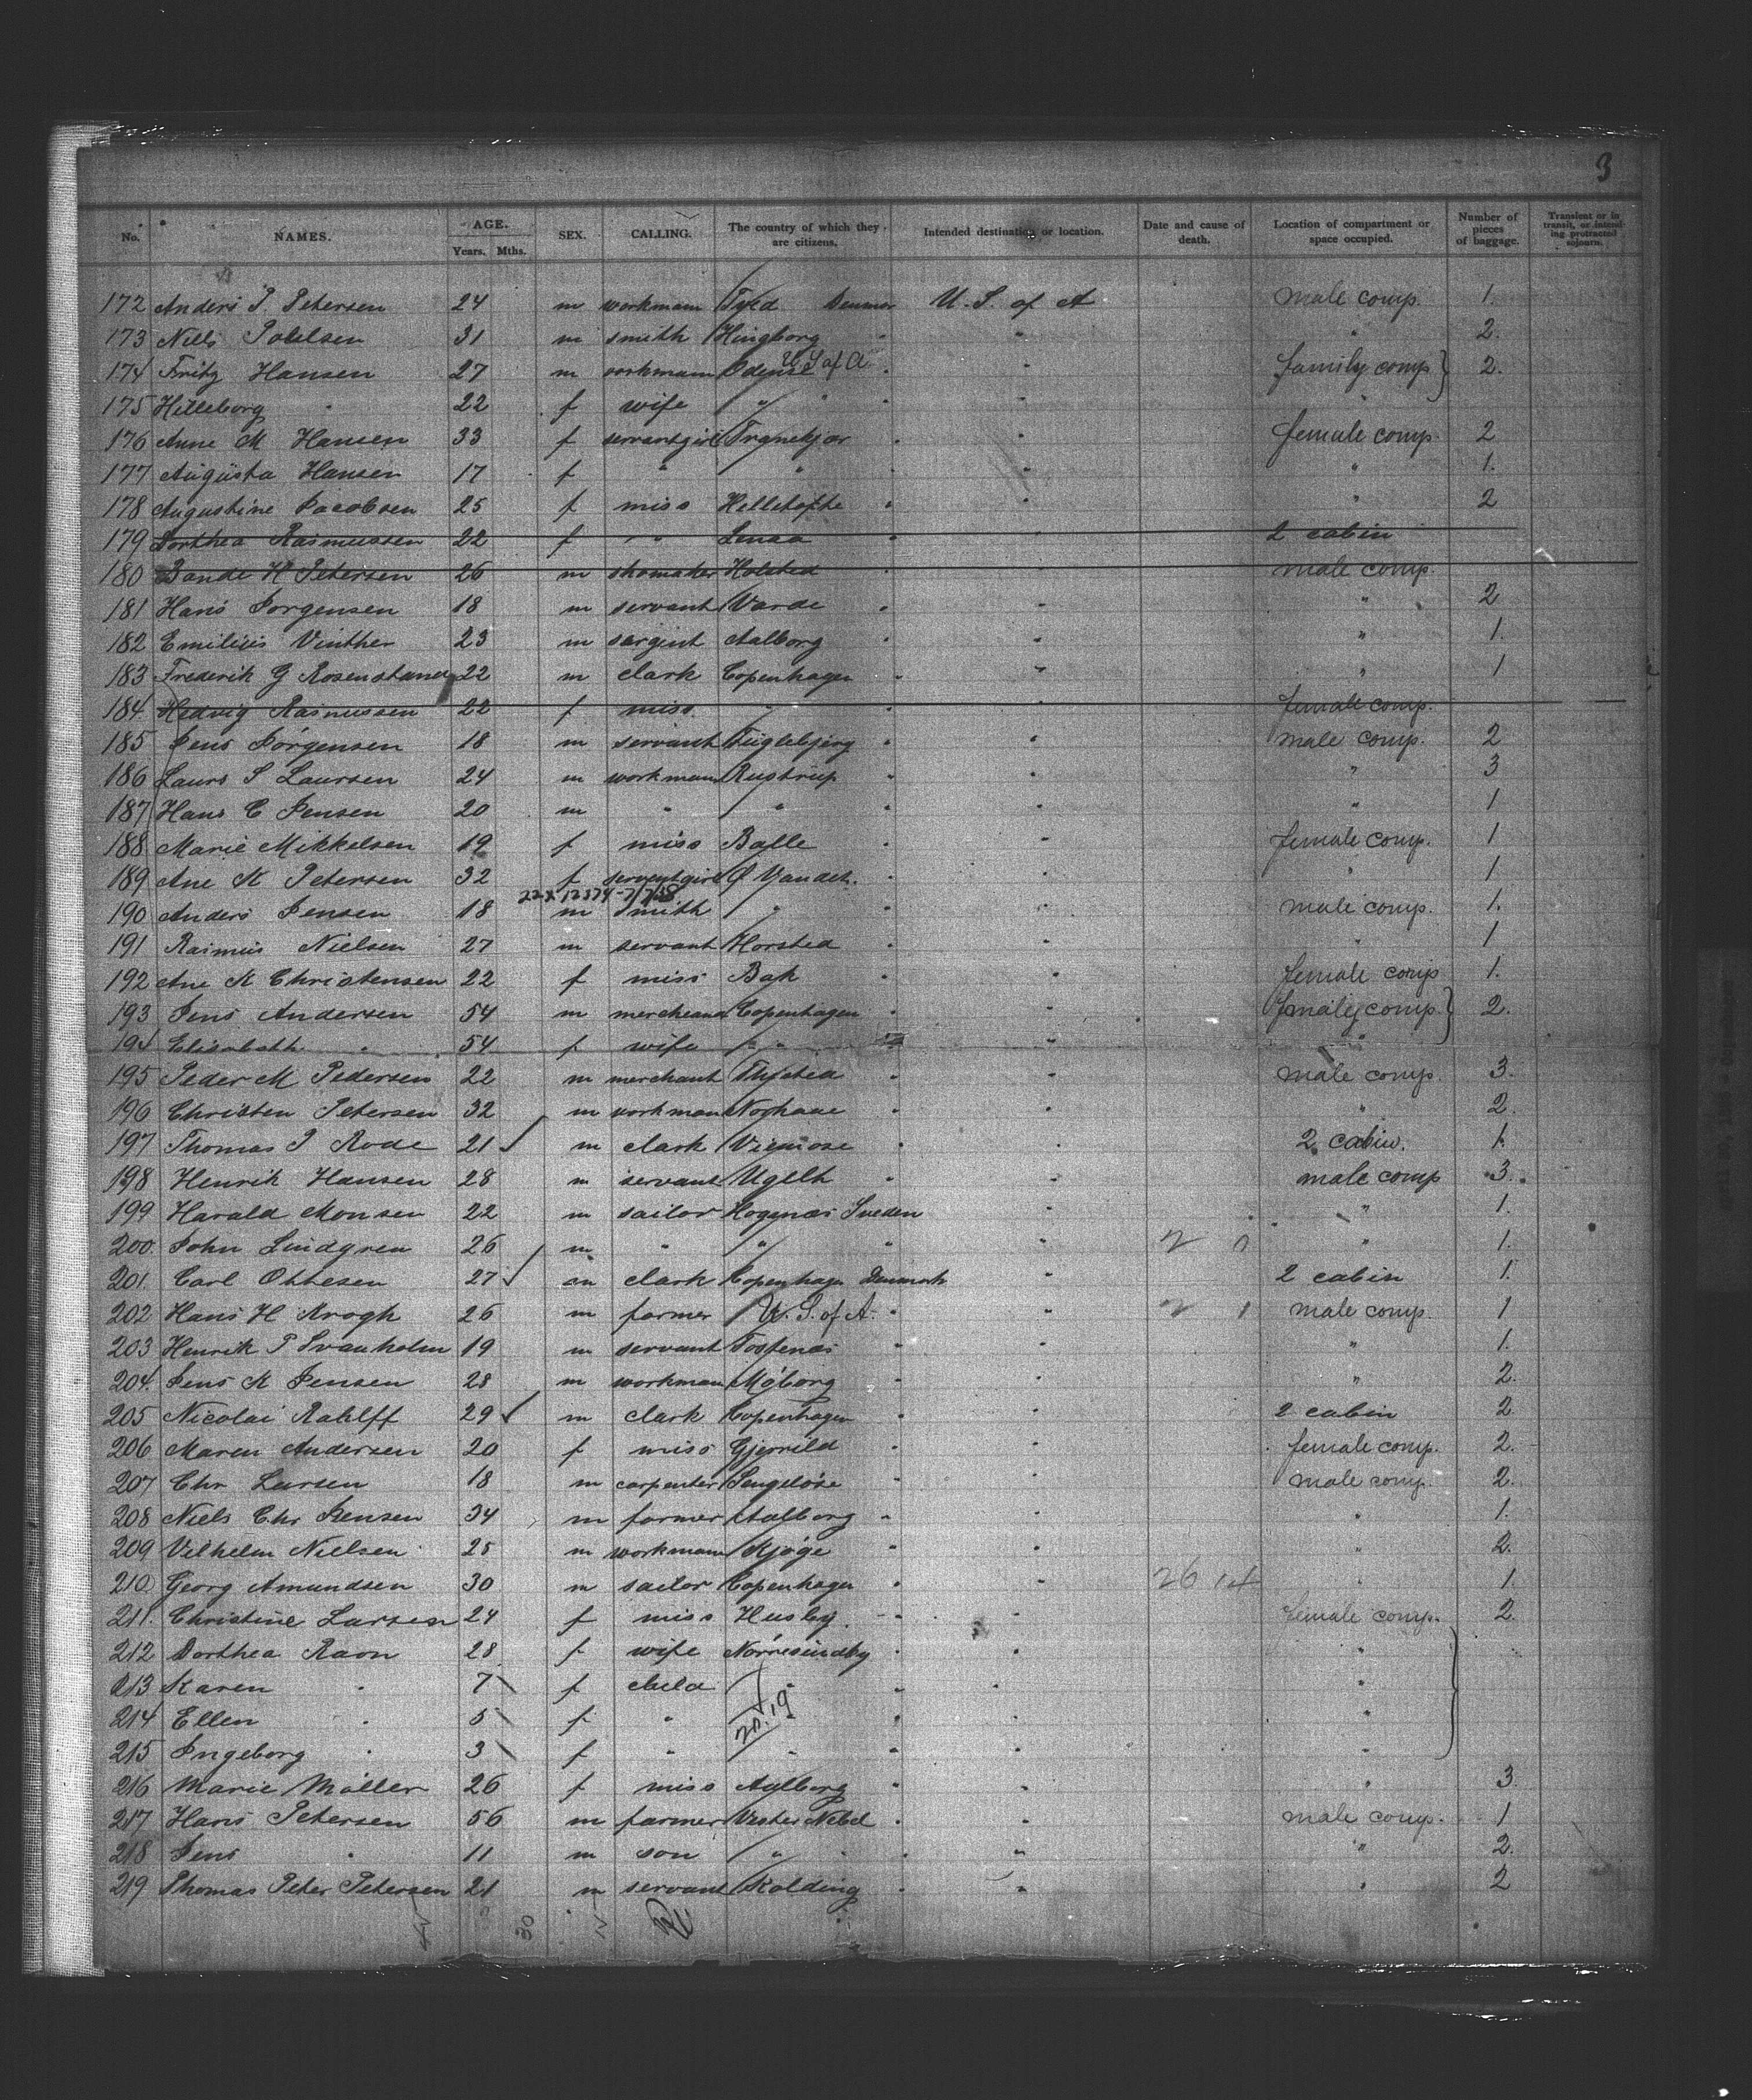 3
No. NAMES. AGE. Years. Mths. SEX. CALLING. The country of which they are citizens. Intended destination or location. Date and cause of death. Location of compartment or space occupied. Number of pieces of baggage. Transient or in transit, or intending protracted sojourn.
172 Anders P. Petersen 24 m workman Denmar U. S. of A male comp. 1.
173 Niels Poulsen 31 m smith " " 2.
174 Fritz Hansen 27 m workman Odense U S of A " " family comp } 2.
175 Hilleborg " 22 f wife " " " "
176 Anne M Hansen 33 f servantgirl Tranekjær " " female comp 2
177 Augusta Hansen 17 f " " " " 1.
178 Augustine Jacobsen 25 f miss Helletofte " " " 2
179 Dorthea Rasmussen 22 f " " " 2 cabin
180 H Petersen 26 m shomaker Holsted " " male comp.
181 Hans Jorgensen 18 m servant Varde " " " 2
182 Emilius Vinther 23 m sergint Aalborg " " " 1.
183 Frederik G Rosenstand 22 m clark Copenhagen " " " 1
184 Hedvig Rasmussen 22 f miss " " " female comp.
185 Jens Jörgensen 18 m servant Fuglebjerg " " male comp. 2
186 Laurs S Laursen 24 m workman Rustrup " " " 3
187 Hans C Jensen 20 m " " " " " 1
188 Marie Mikkelsen 19 f miss Balle " " female comp. 1
189 Ane K Petersen 32 f serventgirl " " " 1
190 Anders Jensen 18 m smith " " male comp. 1.
191 Rasmus Nielsen 27 m servant Horsted " " " 1
192 Ane K Christensen 22 f miss Bak " " female comp 1.
193 Jens Andersen 54 m mercheand Copenhagen " " comp. } 2.
194 Elisabeth " 54 f wife " " " "
195 Peder M Pedersen 22 m merchant Thisted " " male comp. 3.
196 Christen Petersen 32 m workman " " " 2.
197 Thomas P Rode 21 m clark Viemose " " 2 cabin. 1.
198 Henrik Hansen 28 m servant " " male comp 3.
199 Harald Monsen 22 m sailor Hogenæs Sveden " " 1.
200. John Lindgren 26 m " " " " 2 0 " 1.
201. Carl Ottesen 27 m clark Copenhagen Denmark " 2 cabin 1.
202 Hans H Krogh 26 m farmer U. S. of A. " " 2 1 male comp. 1
203 Henrik P Svanholm 19 m servant " " " 1.
204. Jens K Jensen 28 m workman Møborg " " " 2.
205 Nicolai Rahlff 29 m clark Copenhagen " " 2 cabin 2
206 Maren Andersen 20 f miss Gjerrild " " female comp. 2.
207 Chr Larsen 18 m carpenter Sengeløse " " male comp. 2.
208 Niels Chr Jensen 34 m farmer Aalborg " " " 1.
209 Vilhelm Nielsen 25 m workman Kjöge " " " 2.
210. Georg Amundsen 30 m sailor Copenhagen " " 26 14 " 1.
211. Christine Larsen 24 f miss Husby " " female comp. 2.
212 Dorthea Ravn 28 f wife Nörresundby " " "
213 Karen " 7 f child " " " "
214 Ellen " 5 f " " " " "
215 Ingeborg " 3 f " " " " "
216 Marie Möller 26 f miss Aalborg " " " 3.
217 Hans Petersen 56 m farmer Vester Nebel " " male comp. 1
218 Jens " 11 m son " " " " 2.
219 Thomas Peter Petersen 21 m servant Kolding " " " 2
30